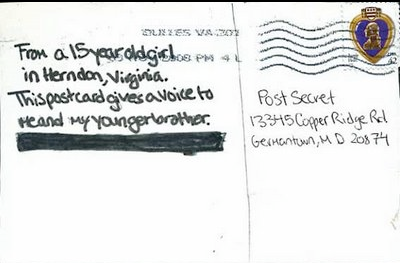 DULLES VA 201
2008 PM 4 L
From a 15 year old girl
in Herndon, Virginia.
This postcard gives a voice to
me and my younger brother.
Post Secret
13345 Copper Ridge Rd
Germantown, MD 20874